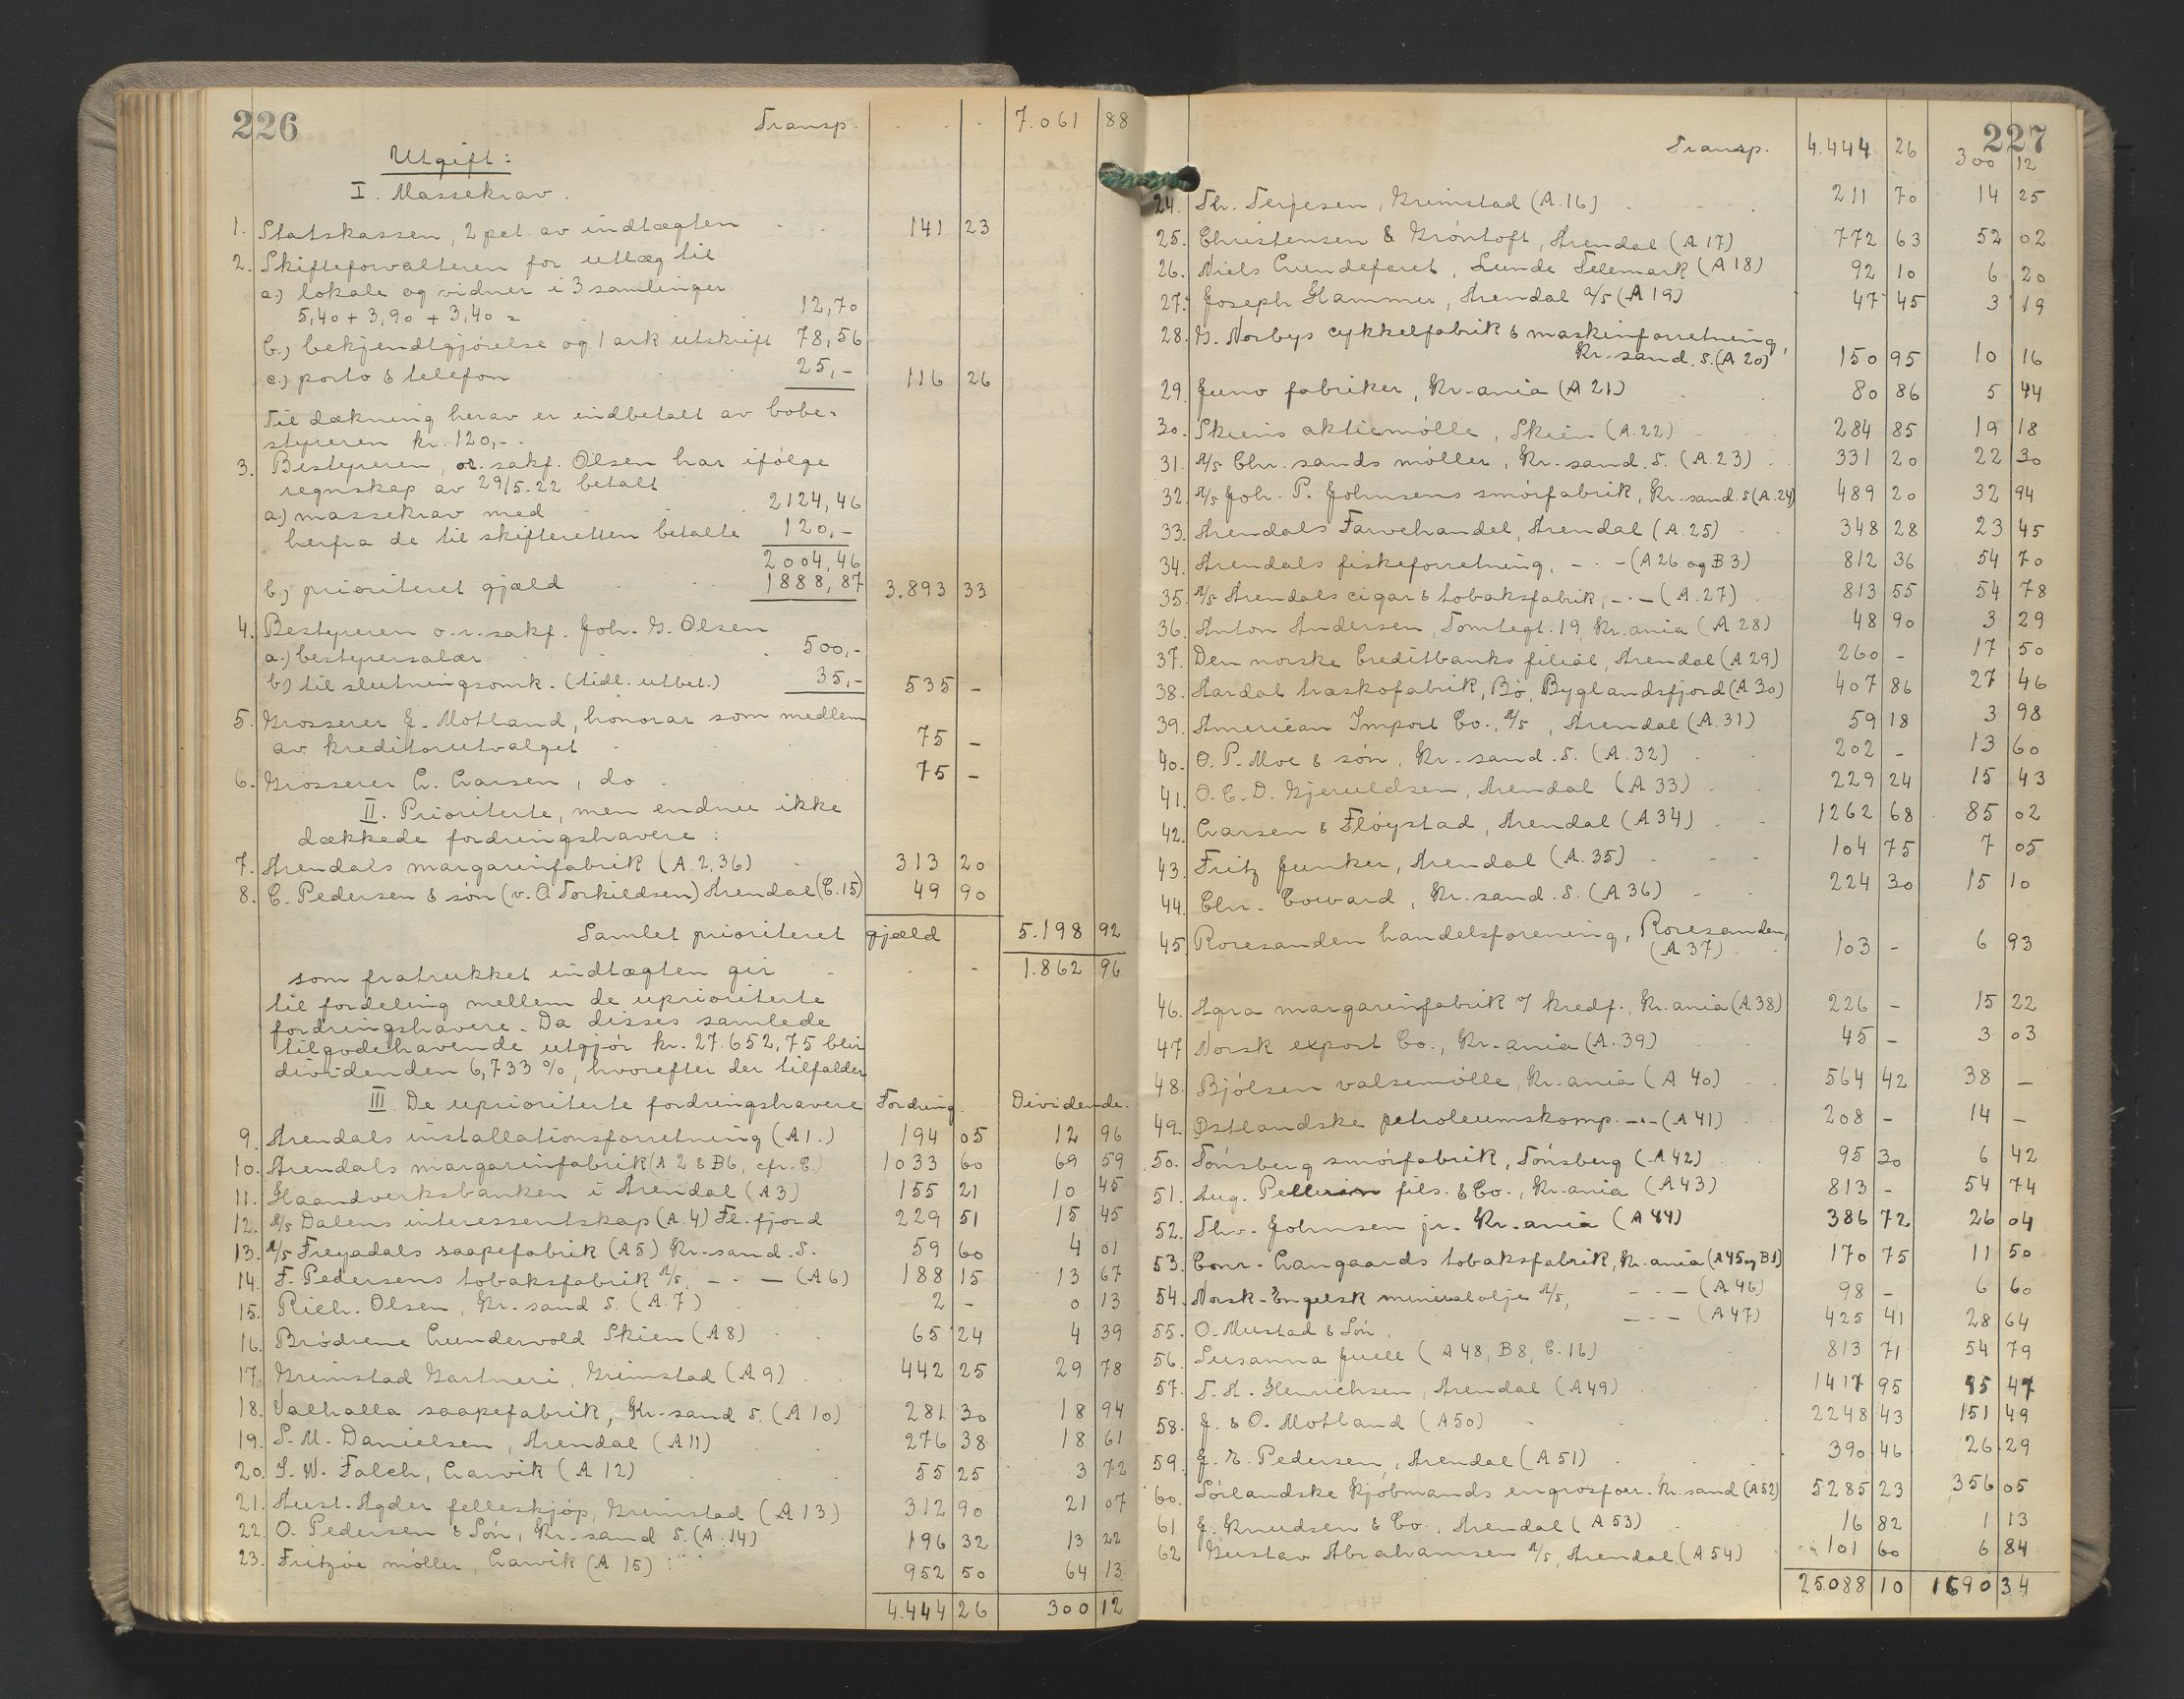 226
Transp. 7.061 88
Utgift:
I. Massekrav.
1. Statskassen, 2 pct. av indtægten 141 23
2. Skifteforvalteren for utlæg til
a.) lokale og vidner i 3 samlinger
5,40 + 3,90 + 3,40 = 12,70
b.) bekjendtgjörelse og 1 ark utskrift 78,56
c.) porto & telefon 25,- 116 26
Til dækning herav er indbetalt av bobe-
styreren kr. 120,-.
3. Bestyreren, or. sakf. Olsen har ifölge
regnskap av 29/5.22 betalt
a.) massekrav med 2124,46
herfra de til skifteretten betalte 120,-
2004,46
b.) prioriteret gjæld 1888,87 3.893 33
4. Bestyreren o.r.sakf. Joh. G. Olsen
a.) bestyrersalær 500,-
b.) til slutningsomk. (tidl. utbet.) 35,- 535 -
5. Grosserer J. Motland, honorar som medlem
av kreditorutvalget 75 -
6. Grosserer C. Larsen, do 75 -
II. Prioriterte, men endnu ikke
dækkede fordringshavere:
7. Arendals margarinfabrik (A. 2, 36) 313 20
8. C. Pedersen & sön (v. O Torkildsen) Arendal (C. 15) 49 90
Samlet prioriteret gjæld 5.198 92
som fratrukket indtægten gir 1.862 96
til fordeling mellem de uprioriterte
fordringshavere. Da disses samlede
tilgodehavende utgjör kr. 27.652,75 blir
dividenden 6,733 %, hvorefter der tilfalder
III. De uprioriterte fordringshavere Fordring. Dividende.
9. Arendals installationsforretning (A1.) 194 05 12 96
10. Arendals margarinfabrik (A 2 & B6, cfr. C.) 1033 60 69 59
11. Haandverksbanken i Arendal (A3) 155 21 10 45
12. A/S Dalens interessentskap (A.4) Fl. fjord 229 51 15 45
13. A/S Freyadals saapefabrik (A5) Kr.-sand. S. 59 60 4 01
14. F. Pedersens tobaksfabrik A/S, - · - (A6) 188 15 13 67
15. Rich. Olsen, Kr. sand S. (A.7) 2 - 0 13
16. Brödrene Lundervold Skien (A8) 65 24 4 39
17. Grimstad Gartneri, Grimstad (A9) 442 25 29 78
18. Valhalla saapefabrik, Kr-sand S. (A 10) 281 30 18 94
19. S. M. Danielsen, Arendal (A 11) 276 38 18 61
20. I. W. Falch, Larvik (A 12) 55 25 3 72
21. Aust-Agder felleskjöp, Grimstad (A 13) 312 90 21 07
22. O. Pedersen & Sön, Kr.-sand S. (A. 14) 196 32 13 22
23. Fritzöe möller, Larvik (A 15) 952 50 64 13
4.444 26 300 12
227
Transp. 4.444 26 300 12
24. Th. Terjesen, Grimstad (A.16) 211 70 14 25
25. Christensen & Gröntoft, Arendal (A 17) 772 63 52 02
26. Niels Lundefaret, Lunde Telemark (A 18) 92 10 6 20
27. Joseph Hammer, Arendal a/s (A 19) 47 45 3 19
28. G. Norbys cykkelfabrik & maskinforretning,
Kr.-sand. S. (A 20) 150 95 10 16
29. Juno fabriker, Kr-ania (A 21) 80 86 5 44
30. Skiens aktiemölle, Skien (A.22) 284 85 19 18
31. A/S Chr.sands möller, Kr.-sand. S. (A.23) 331 20 22 30
32. A/S Joh. P. Johnsens smörfabrik, Kr.-sand. S (A.24) 489 20 32 94
33. Arendals Farvehandel, Arendal (A.25) 348 28 23 45
34. Arendals fiskeforretning, - · - (A 26 og B 3) 812 36 54 70
35. A/S Arendals cigar & tobaksfabrik, - · - (A.27) 813 55 54 78
36. Anton Andersen, Tomtegt. 19, Kr.ania (A 28) 48 90 3 29
37. Den norske Creditbanks filial, Arendal (A 29) 260 - 17 50
38. Aardal træskofabrik, Bö, Byglandsfjord (A 30) 407 86 27 46
39. American Import Co., A/S, Arendal (A.31) 59 18 3 98
40. O. P. Moe & sön, Kr.-sand. S. (A.32) 202 - 13 60
41. O. C. D. Gjeruldsen, Arendal (A 33) 229 24 15 43
42. Larsen & Flöystad, Arendal (A 34) 1262 68 85 02
43. Fritz Junker, Arendal (A.35) 104 75 7 05
44. Chr. Coward, Kr.sand. S. (A 36) 224 30 15 10
45. Roresanden handelsforening, Roresanden,
(A 37) 103 - 6 93
46. Agra margarinfabrik v/ kredf., Kr.ania (A 38) 226 - 15 22
47 Norsk export Co., Kr-ania (A.39) 45 - 3 03
48. Bjölsen valsemölle, Kr.ania (A 40) 564 42 38 -
49. Östlandske petroleumskomp. - · - (A 41) 208 - 14 -
50. Tönsberg smörfabrik, Tönsberg (A 42) 95 30 6 42
51. Aug. Pellerin fils. & Co., Kr.ania (A 43) 813 - 54 74
52. Thv. Johnsen jr. Kr.ania (A 44) 386 72 26 04
53. Conr. Langaards tobaksfabrik, Kr.ania (A45 og B1) 170 75 11 50
54. Norsk-Engelsk mineralolje A/S, - · - (A 46) 98 - 6 60
55. O. Mustad & Sön, - · - (A 47) 425 41 28 64
56. Susanna Juell (A 48, B 8, C. 16) 813 71 54 79
57. T. A. Henrichsen, Arendal (A49) 1417 95 95 47
58. J. & O. Motland (A50) 2248 43 151 49
59. J. E. Pedersen, Arendal (A 51) 390 46 26 29
60. Sörlandske kjöbmands engrosforr. Kr. sand (A52) 5285 23 356 05
61 J. Knudsen & Co., Arendal (A 53) 16 82 1 13
62 Gustav Abrahamsen A/S, Arendal (A 54) 101 60 6 84
25088 10 1690 34